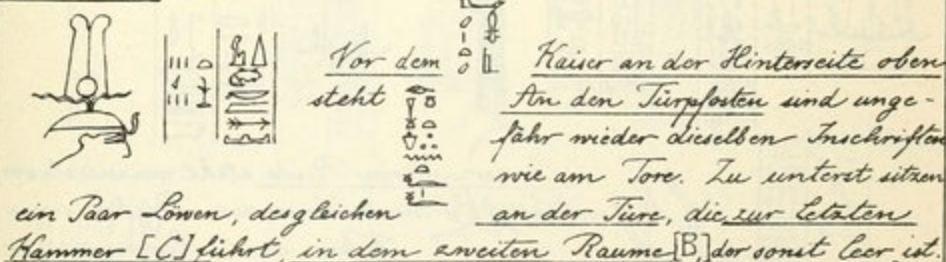 Vor dem Kaiser an der Hinterseite oben
steht An den Türpfosten sind unge-
fähr wieder dieselben Inschriften
wie am Tore. Zu unterst sitzen
ein Paar Löwen, desgleichen an der Türe, die zur letzten
Kammer [C] führt, in dem zweiten Raume [B,] der sonst leer ist.